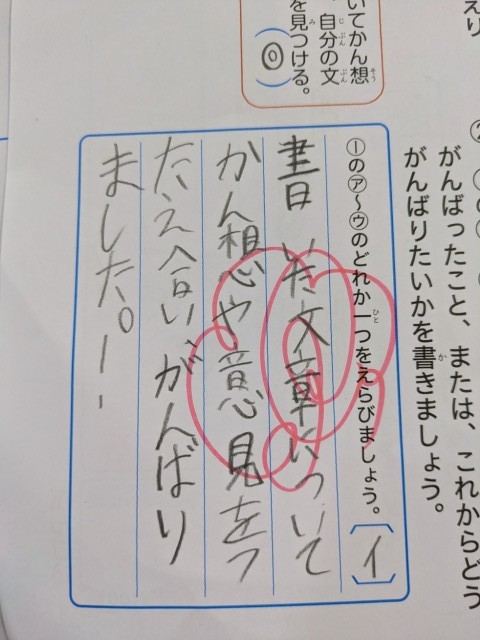 がんばったこと、または、これからどう
がんばりたいかを書きましょう。
①の㋐～㋒のどれか一つをえらびましょう。〔イ〕
書いた文章について
かん想や意見をつ
たえ合い、がんばり
ました。！！
いてかん想
、自分の文
を見つける。
（◎）